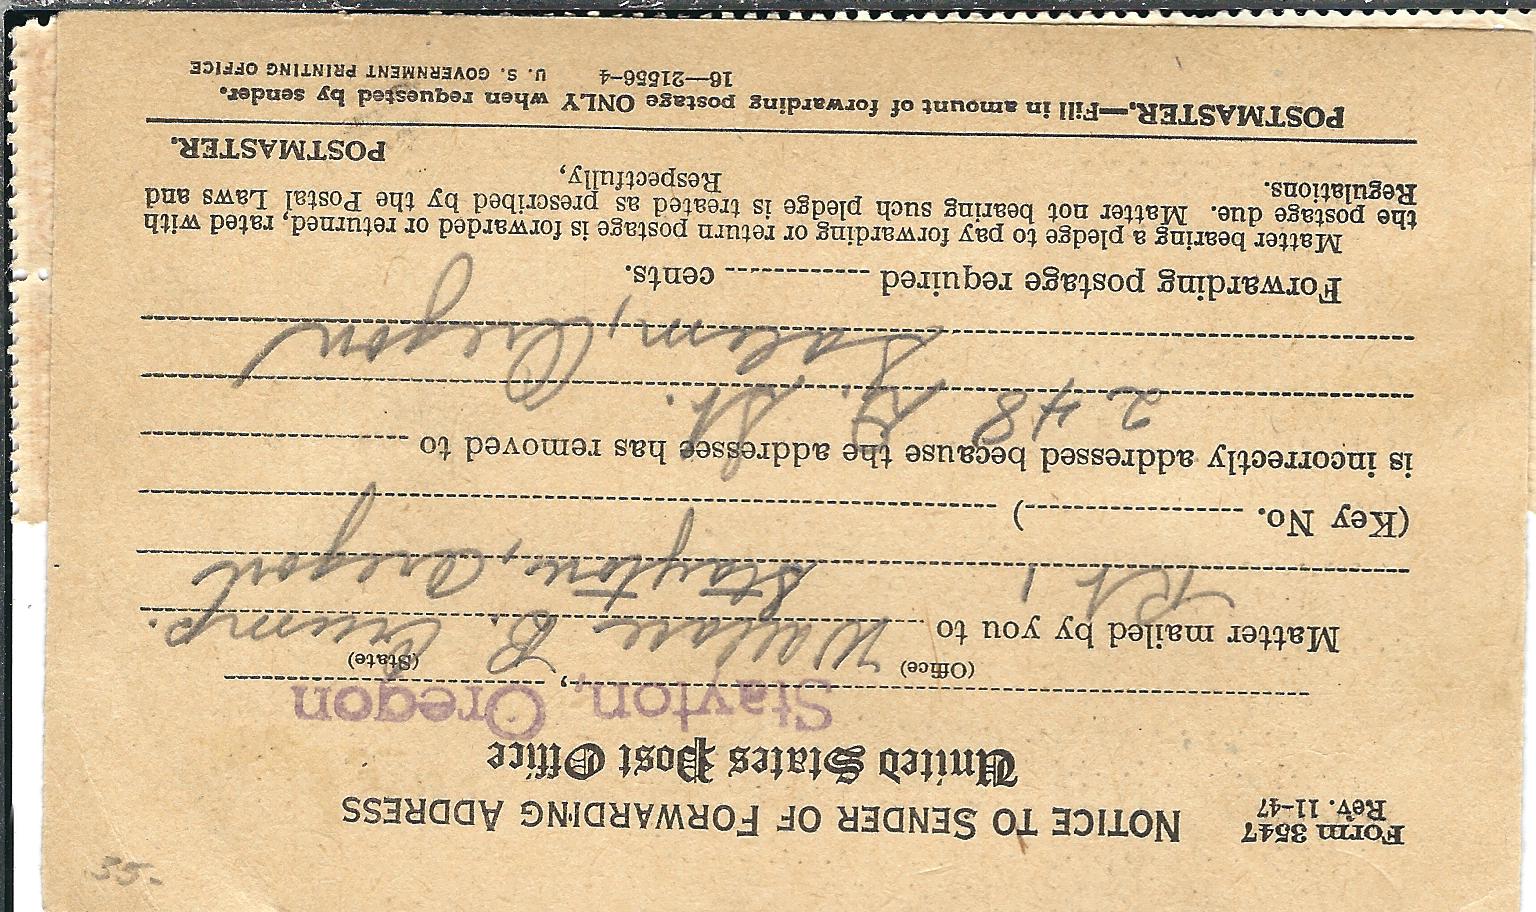 Form 3547
Rev. 11-47
NOTICE TO SENDER OF FORWARDING ADDRESS
United States Post Office
Stayton, Oregon
(Office) (State)
Matter mailed by you to Wallace B. Crump.
Rt. 1 Stayton, Oregon
(Key No. )
is incorrectly addressed because the addressee has removed to
248 D. St.
Salem, Oregon
Forwarding postage required cents.
Matter bearing a pledge to pay forwarding or return postage is forwarded or returned, rated with
the postage due. Matter not bearing such pledge is treated as prescribed by the Postal Laws and
Regulations.
Respectfully,
POSTMASTER.
POSTMASTER.—Fill in amount of forwarding postage ONLY when requested by sender.
16—21556-4 U. S. GOVERNMENT PRINTING OFFICE
35-